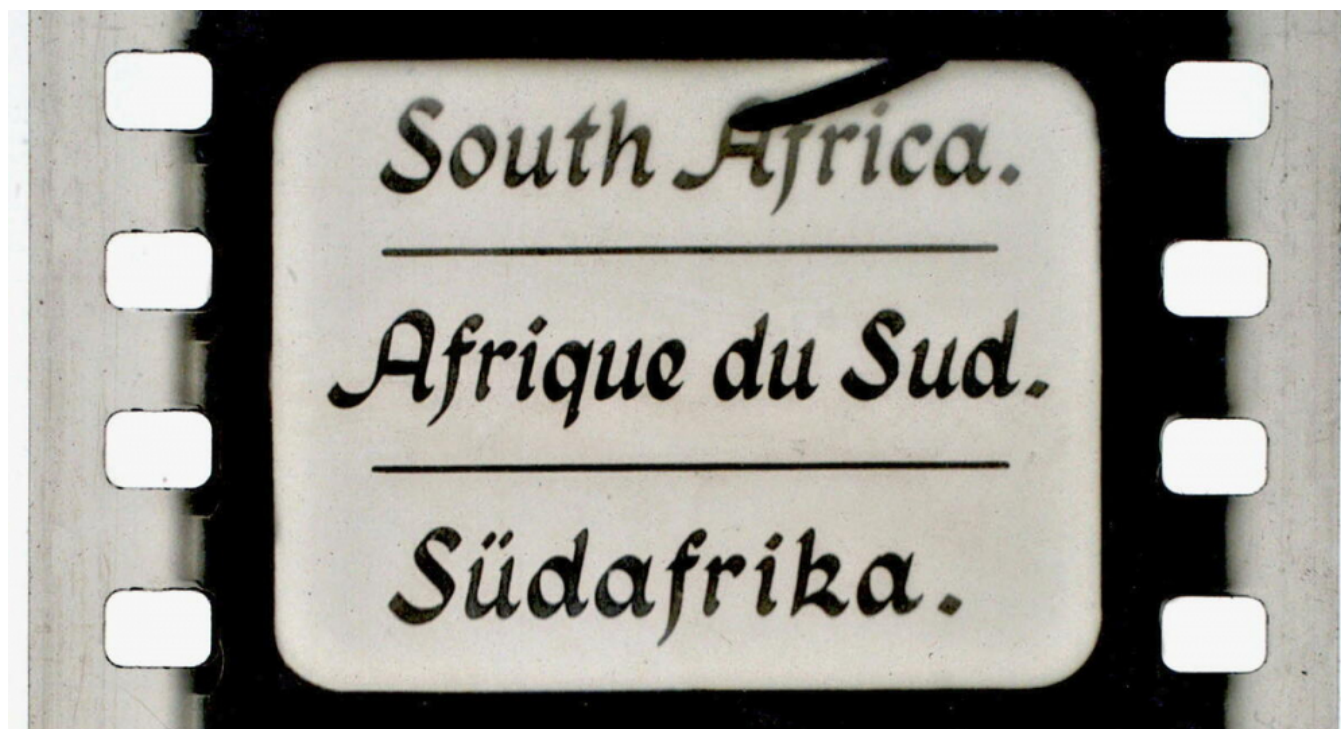 South Africa.
Afrique du Sud.
Südafrika.